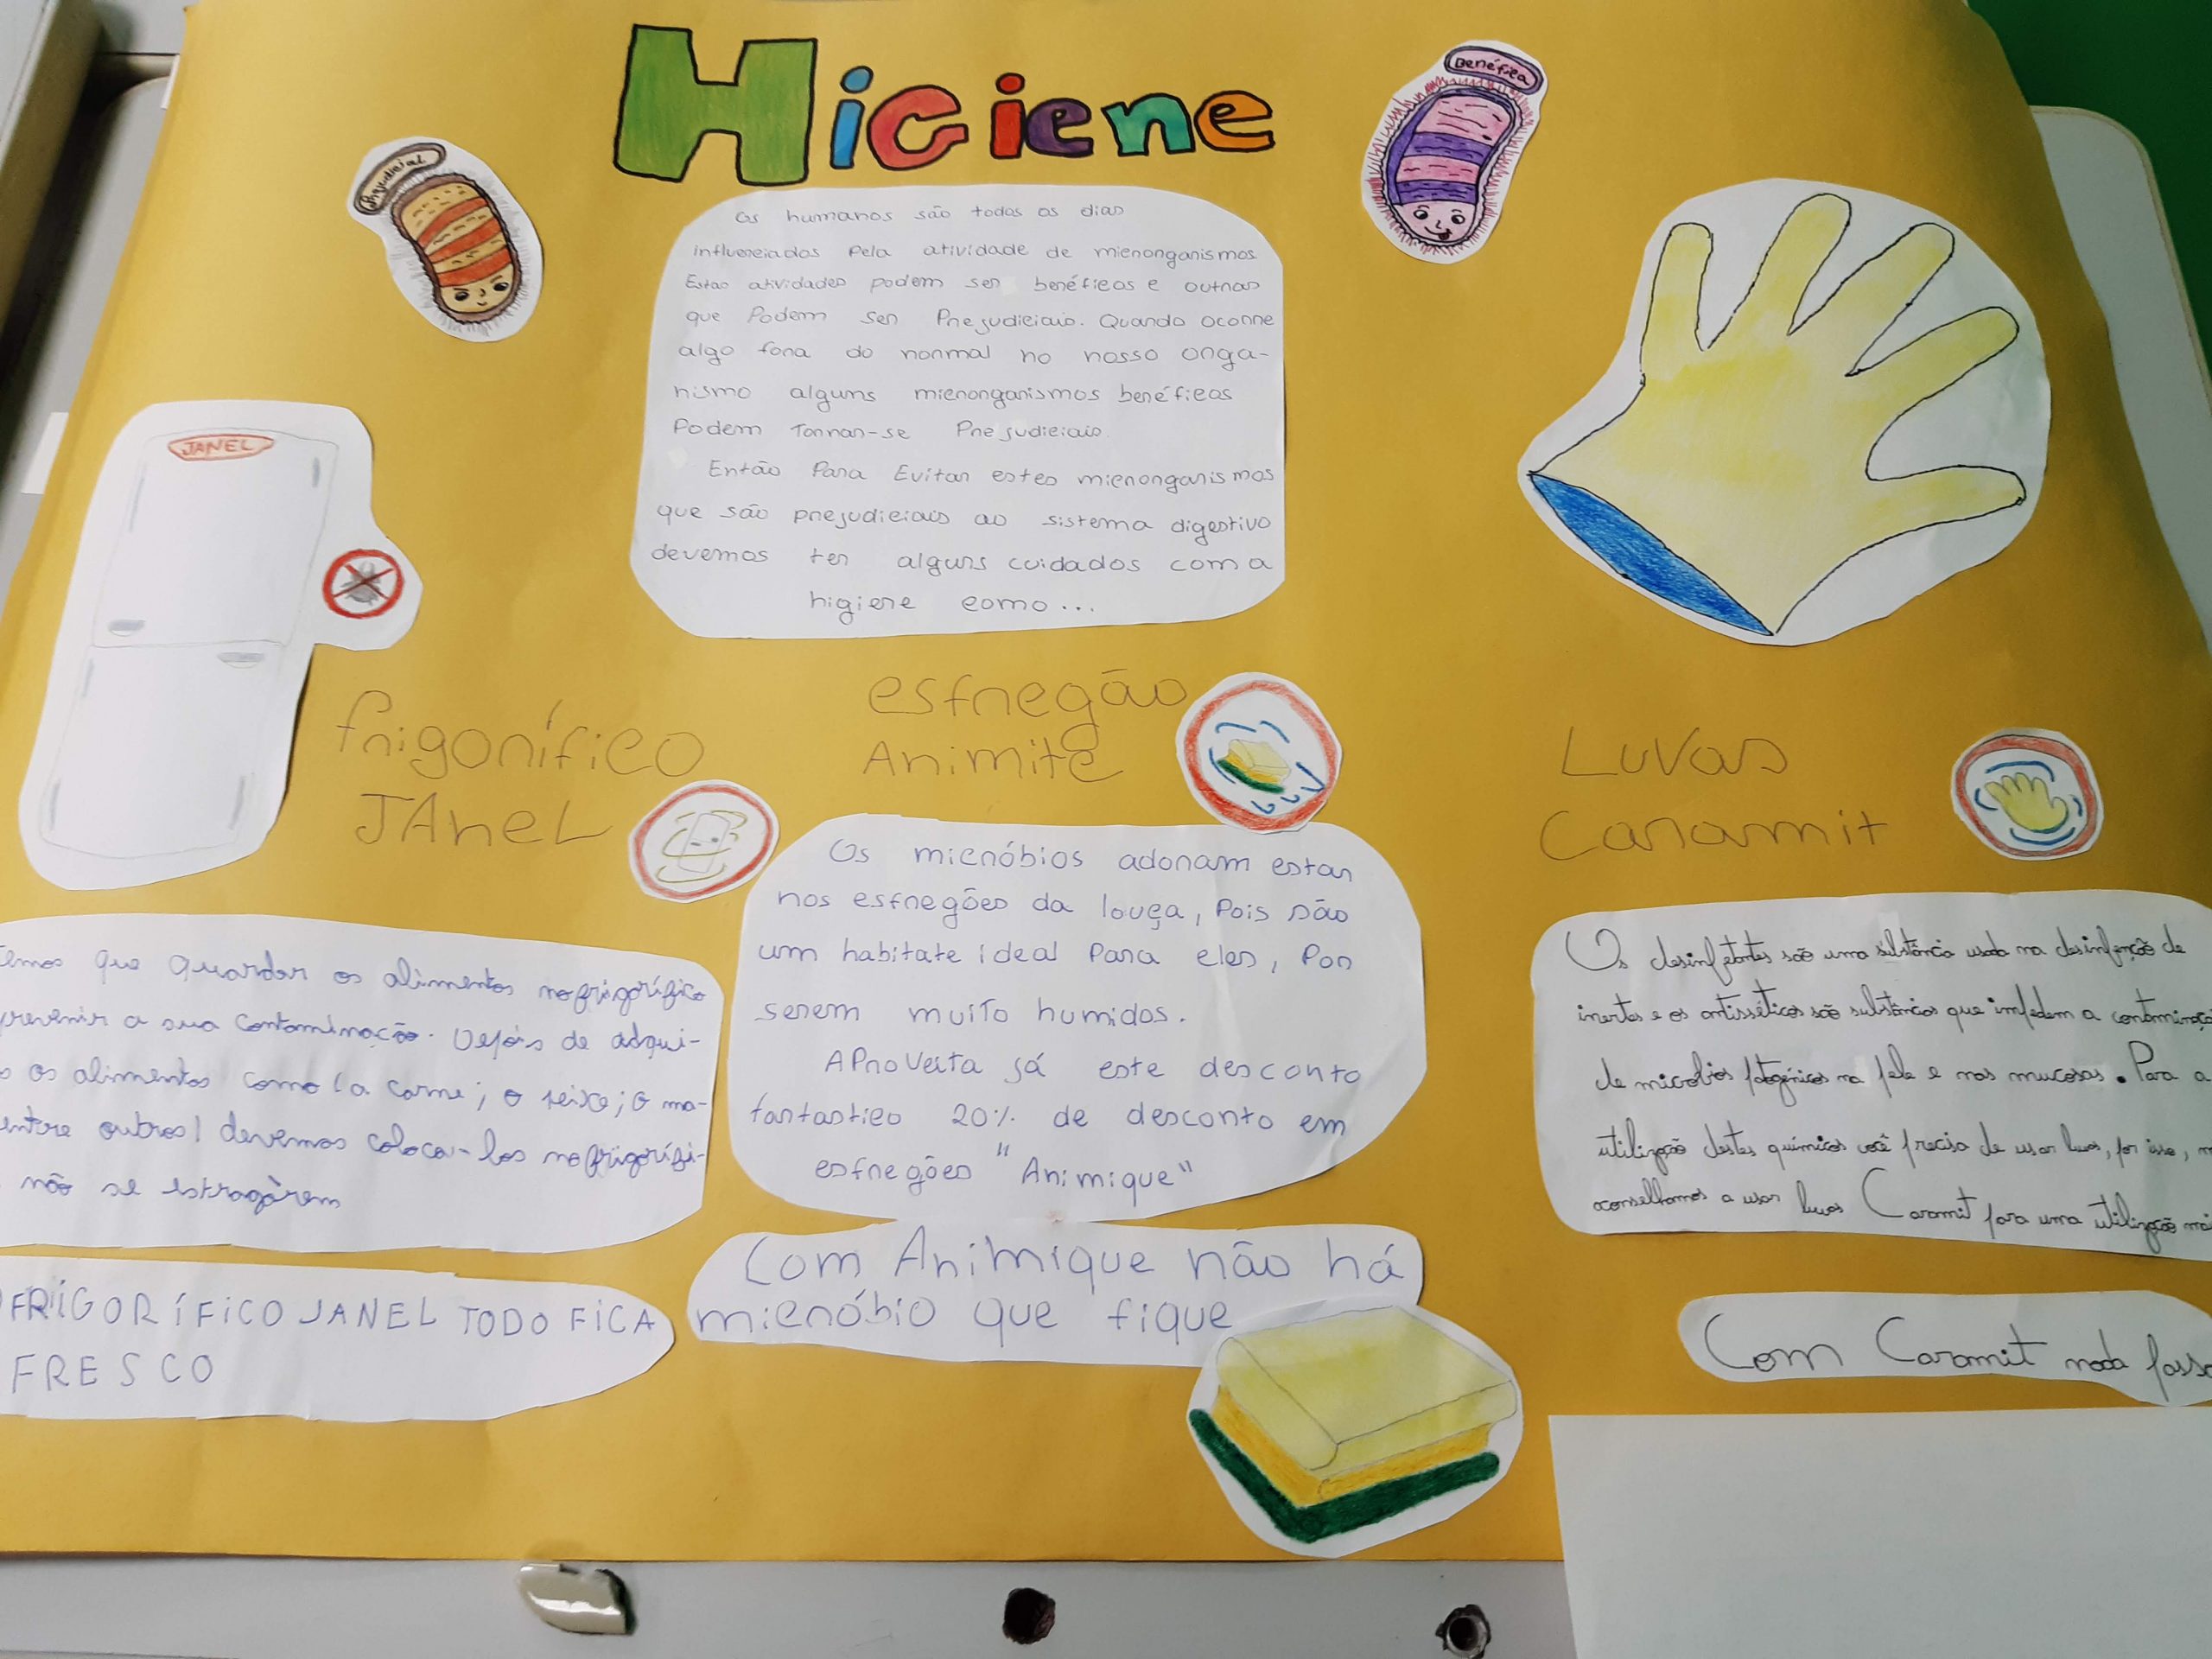 Higiene
Prejudicial
Benéfica
Os humanos são todos os dias
influenciados pela atividade de microrganismos.
Estas atividades podem ser benéficas e outras
que Podem ser Prejudiciais. Quando ocorre
algo fora do normal no nosso orga-
nismo alguns microrganismos benéficos
Podem Tornar-se Prejudiciais.
Então Para Evitar estes microrganismos
que são prejudiciais ao sistema digestivo
devemos ter alguns cuidados com a
higiene como...
JANEL
frigorífico
JAneL
esfregão
Animite
Luvas
Caramit
que guardar os alimentos no frigorífico
prevenir a sua contaminação. Depois de adqui-
os alimentos como (a carne; o peixe; o ma-
entre outros) devemos coloca-los no frigorífi-
não se estragàrem
FRIGORÍFICO JANEL TODO FICA
FRESCO
Os micróbios adoram estar
nos esfregões da louça, Pois são
um habitate ideal Para eles, Por
serem muito humidos.
AProveita já este desconto
fantastico 20% de desconto em
esfregões "Animique"
Com Animique não há
micróbio que fique
Os desinfetantes são uma substância usada na desinfenção de
inertes e os antisséticos são substâncias que impedem a
de microbios patogénicos na pele e nas mucosas. Para a
utilização destes químicos você precisa de usar luvas, por isso,
aconselhamos a usar luvas Caramit para uma utilização
Com Caramit nada